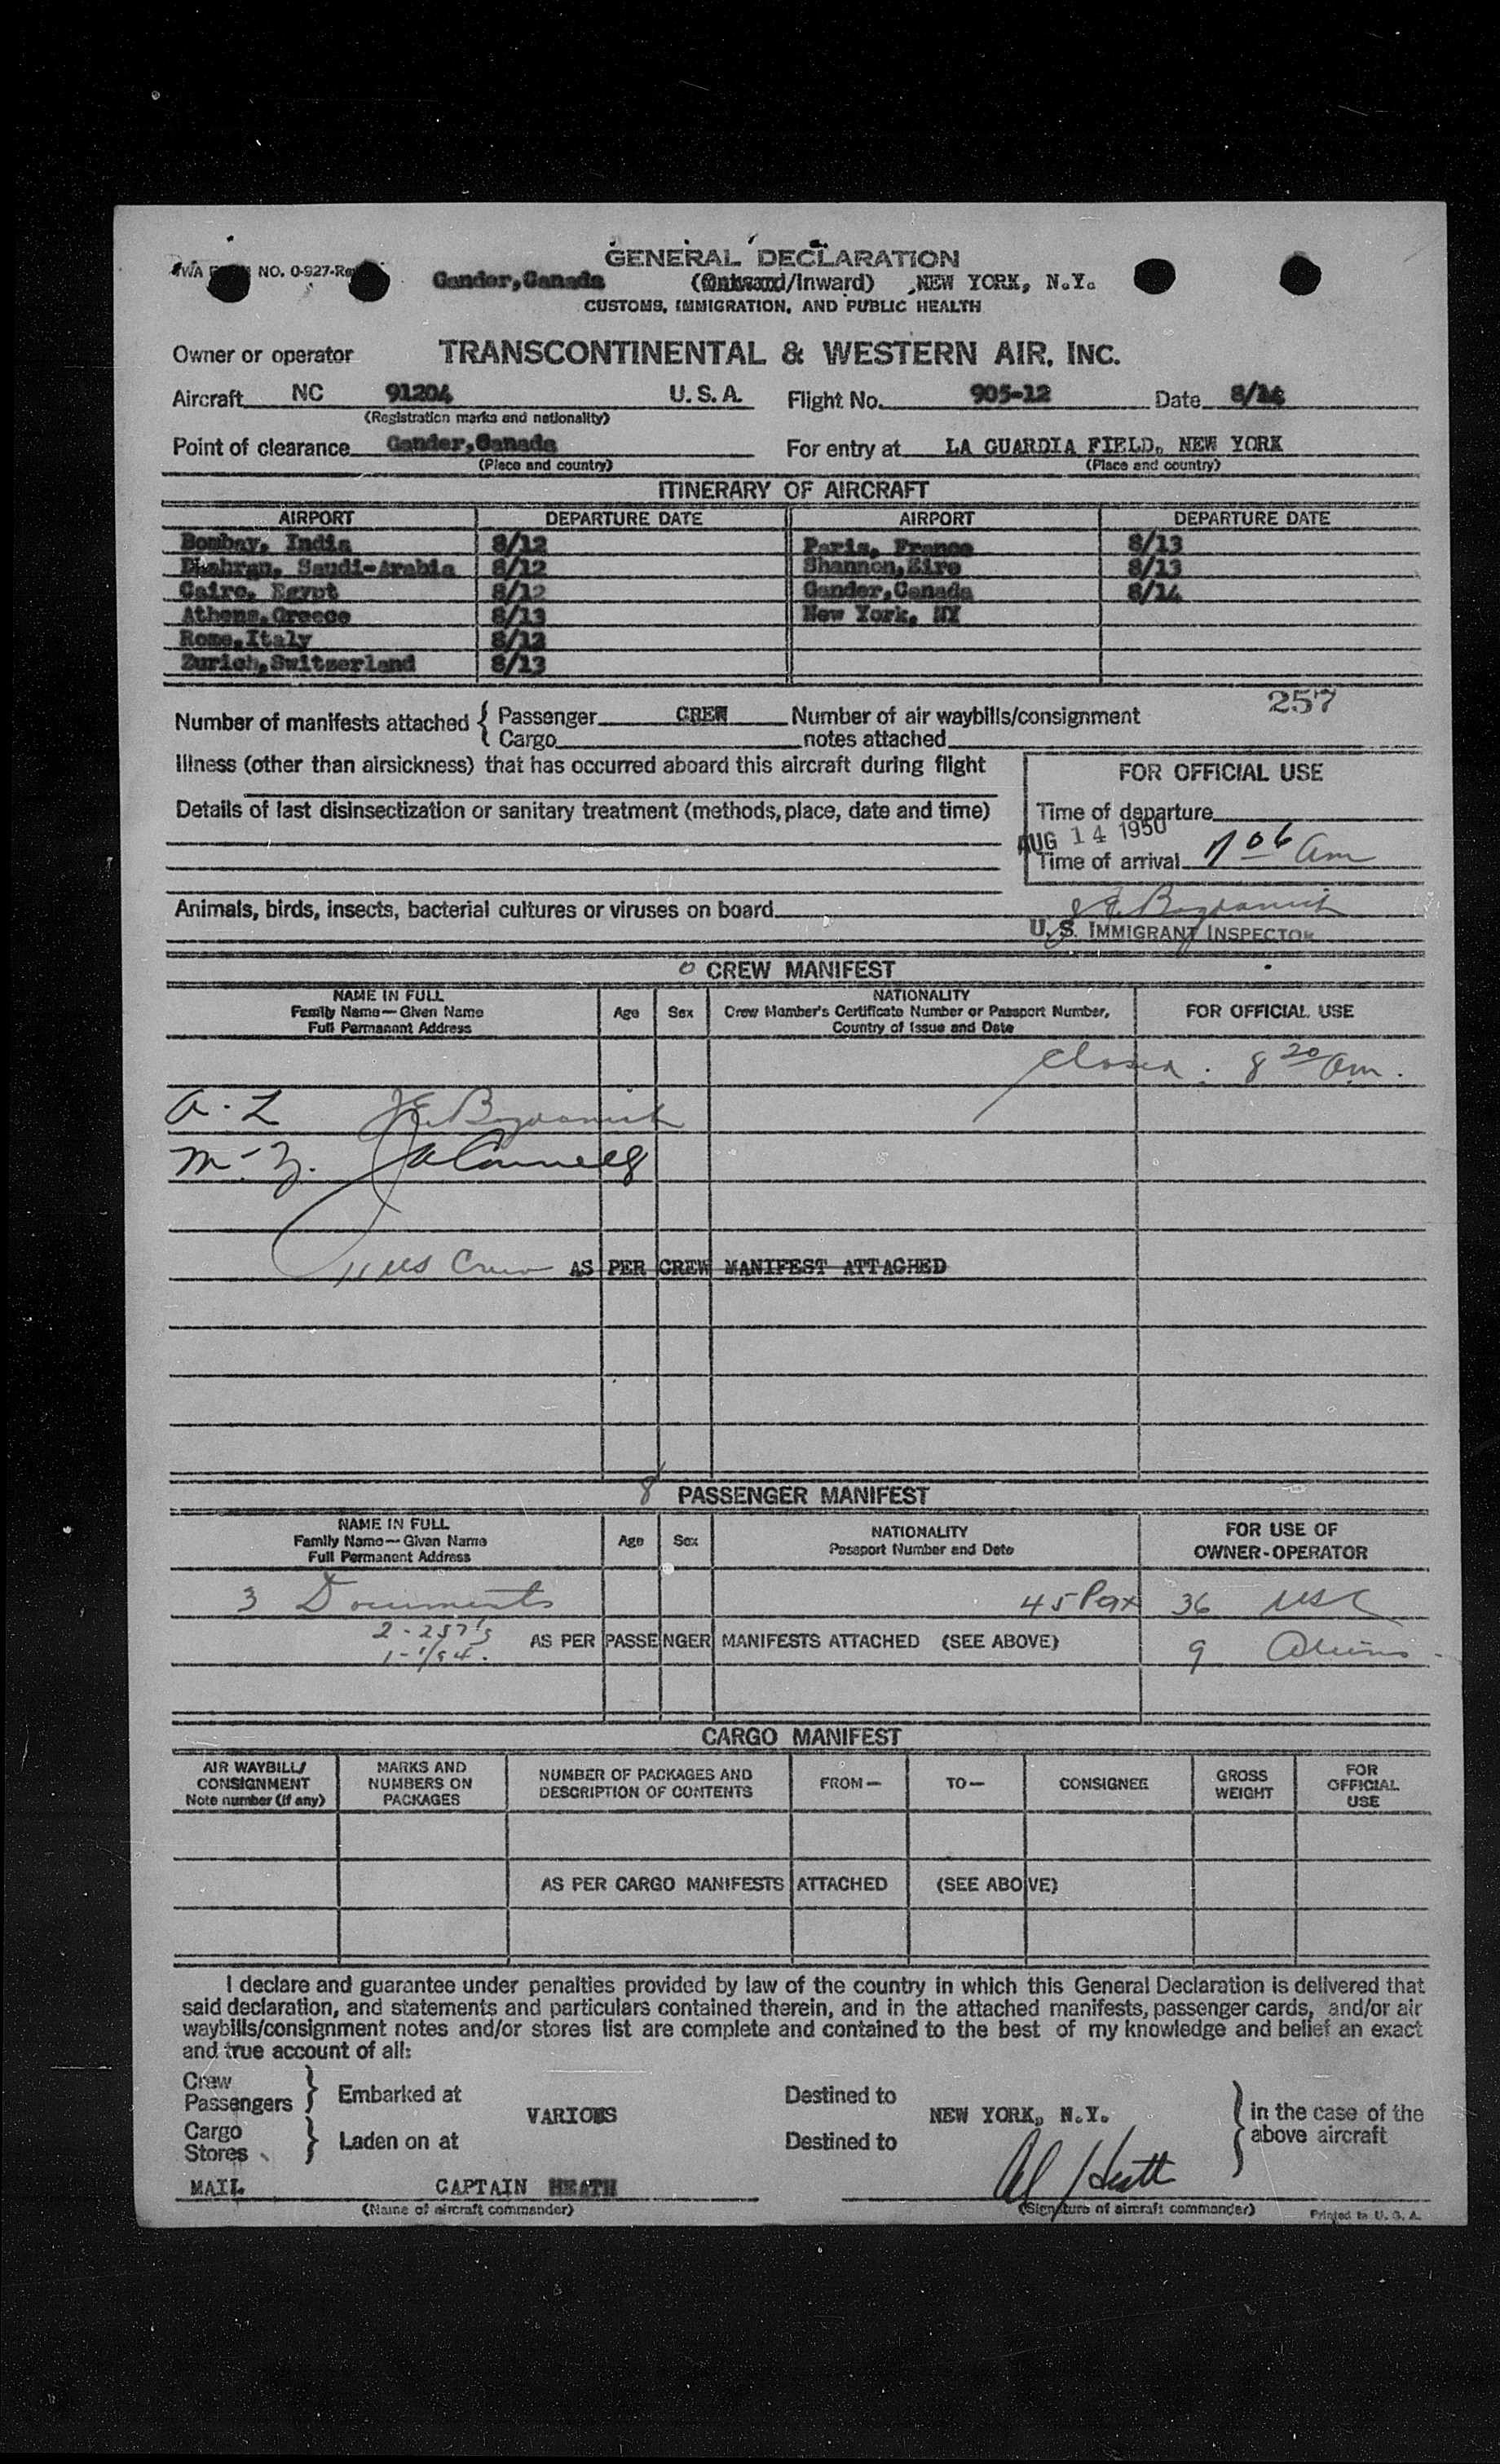 TWA NO. 0-927-Re
GENERAL DECLARATION
Gander,Canada (Outward/Inward) NEW YORK, N.Y.
CUSTOMS, IMMIGRATION, AND PUBLIC HEALTH
Owner or operator TRANSCONTINENTAL & WESTERN AIR, INC.
Aircraft NC 91204 U.S.A. Flight No. 905-12 Date 8/14
(Registration marks and nationality)
Point of clearance Gander,Canada For entry at LA GUARDIA FIELD, NEW YORK
(Place and country) (Place and country)
ITINERARY OF AIRCRAFT
AIRPORT DEPARTURE DATE AIRPORT DEPARTURE DATE
Bombay, India 8/12 Paris, France 8/13
Dhahran, Saudi-Arabia 8/12 Shannon,Eire 8/13
Cairo, Egypt 8/12 Gander,Canada 8/14
Athens,Greece 8/13 New York, NY
Rome,Italy 8/13
Zurich,Switzerland 8/13
257
Number of manifests attached { Passenger CREW Number of air waybills/consignment
Cargo notes attached
Illness (other than airsickness) that has occurred aboard this aircraft during flight
FOR OFFICIAL USE
Details of last disinsectization or sanitary treatment (methods, place, date and time)
Time of departure
AUG 14 1950
Time of arrival 7 06 am
Animals, birds, insects, bacterial cultures or viruses on board
J E Bogdanich
U.S. IMMIGRANT INSPECTOR
0 CREW MANIFEST
NAME IN FULL
Family Name—Given Name
Full Permanent Address
Age Sex
NATIONALITY
Crew Member's Certificate Number or Passport Number,
Country of Issue and Date
FOR OFFICIAL USE
Closed. 8 20 am.
A-L J E Bogdanich
M-Z.
11 US Crew AS PER CREW MANIFEST ATTACHED
8 PASSENGER MANIFEST
NAME IN FULL
Family Name—Given Name
Full Permanent Address
Age Sex
NATIONALITY
Passport Number and Date
FOR USE OF
OWNER-OPERATOR
3 Documents 45 Pax 36 USC
2-257's AS PER PASSENGER MANIFESTS ATTACHED (SEE ABOVE) 9 Aliens
1-I/94.
CARGO MANIFEST
AIR WAYBILL/
CONSIGNMENT
Note number (if any)
MARKS AND
NUMBERS ON
PACKAGES
NUMBER OF PACKAGES AND
DESCRIPTION OF CONTENTS
FROM— TO— CONSIGNEE
GROSS
WEIGHT
FOR
OFFICIAL
USE
AS PER CARGO MANIFESTS ATTACHED (SEE ABOVE)
I declare and guarantee under penalties provided by law of the country in which this General Declaration is delivered that
said declaration, and statements and particulars contained therein, and in the attached manifests, passenger cards, and/or air
waybills/consignment notes and/or stores list are complete and contained to the best of my knowledge and belief an exact
and true account of all:
Crew
Passengers } Embarked at VARIOUS Destined to NEW YORK, N.Y. } in the case of the
above aircraft
Cargo
Stores } Laden on at Destined to
MAIL CAPTAIN HEATH Al Heath
(Name of aircraft commander) (Signature of aircraft commander) Printed in U. S. A.